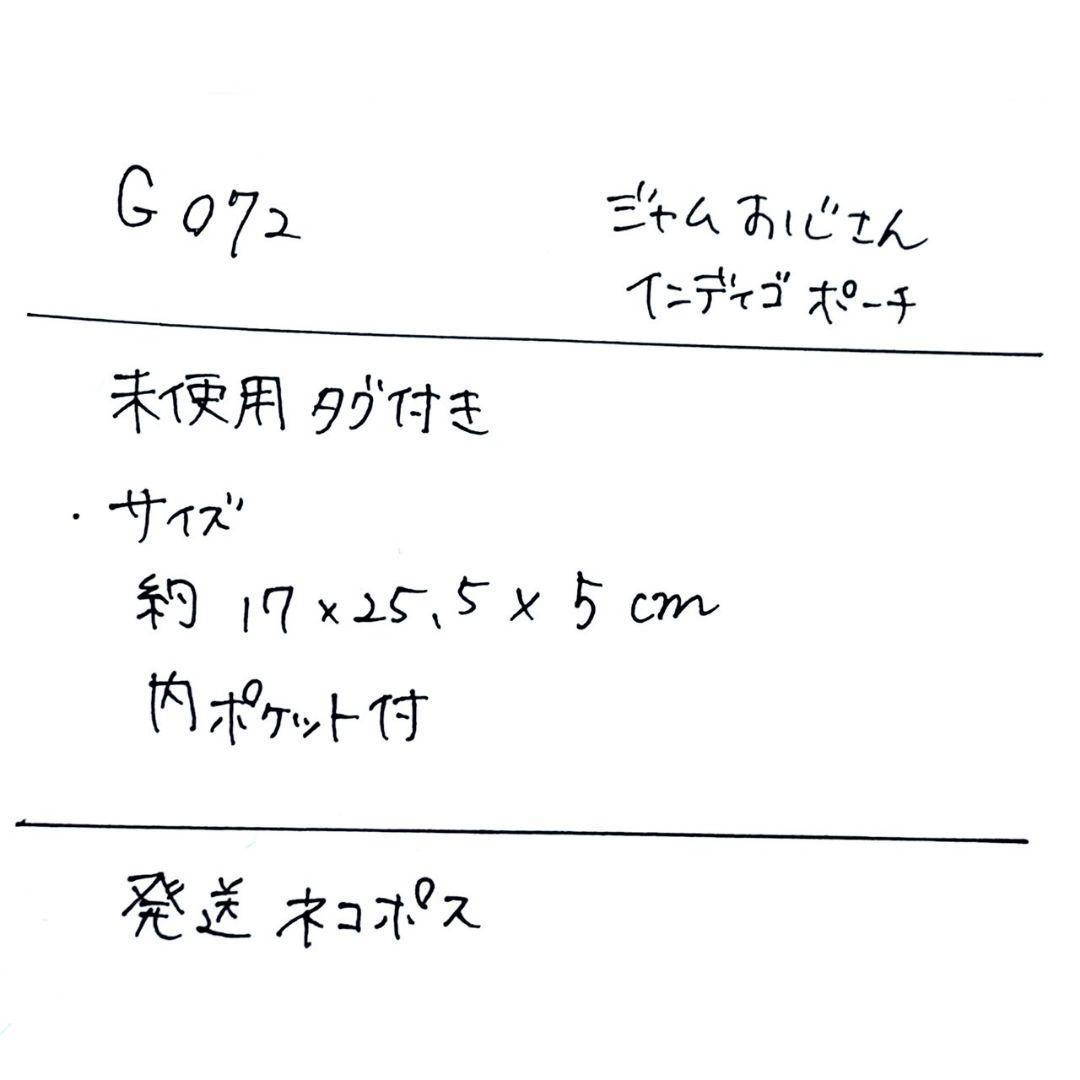 G072
ジャムおじさん
インディゴ ポーチ
未使用 タグ付き
・サイズ
約 17×25.5×5cm
内ポケット付
発送 ネコポス